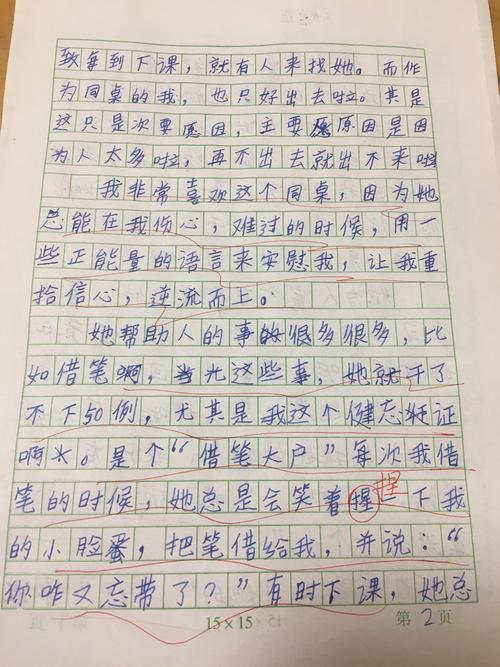 致每到下课，就有人来找她。而作
为同桌的我，也只好出去啦。其是
这只是次要原因，主要原因是因
为人太多啦，再不出去就出不来啦
我非常喜欢这个同桌，因为她
总能在我伤心，难过的时候，用一
些正能量的语言来安慰我，让我重
拾信心，逆流而上。
她帮助人的事很多很多，比
如借笔啊，光这些事，她就干了
不下50例，尤其是我这个健忘症
啊。是个“借笔大户”每次我借
笔的时候，她总是会笑着捏下我
捏
的小脸蛋，把笔借给我，并说：“
你咋又忘带了？”有时下课，她总
15×15 第2页